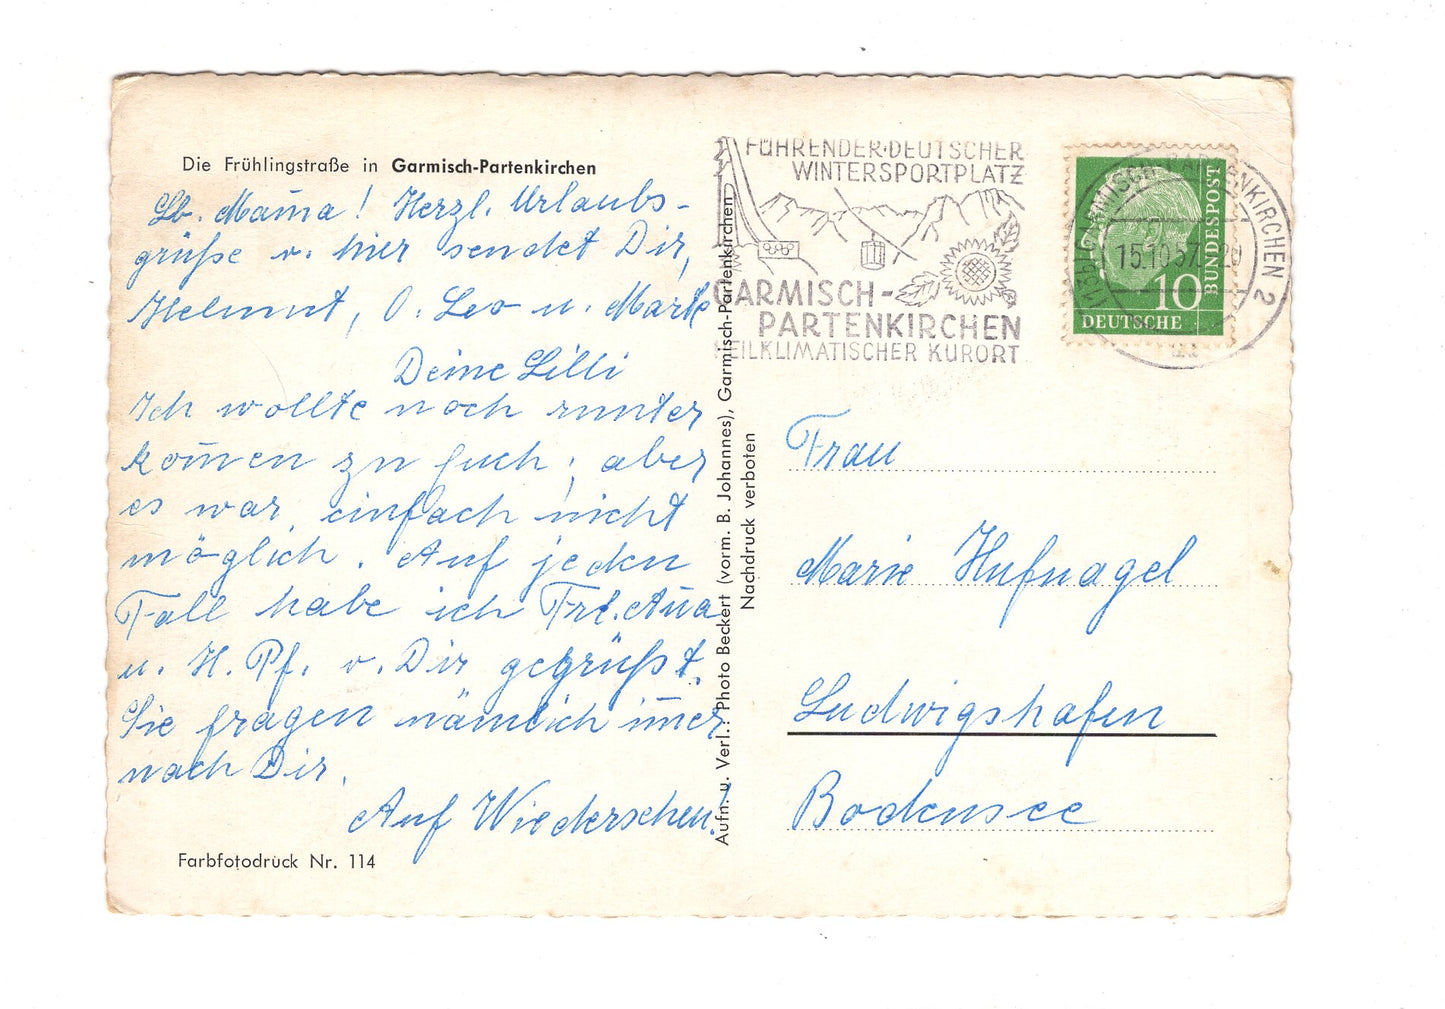 Die Frühlingstraße in Garmisch-Partenkirchen
Lb. Mam̄a! Herzl. Urlaubs-
grüße v. hier sendet Dir,
Helmut, O. Leo u. Marle
Deine Lilli
Ich wollte noch runter
kom̄en zu Euch, aber
es war einfach nicht
möglich. Auf jeden
Fall habe ich Frl. An̄a
u. H. Pf. v. Dir gegrüßt.
Sie fragen nämlich im̄er
nach Dir.
Auf Wiedersehen!
Farbfotodruck Nr. 114
Aufn. u. Verl.: Photo Beckert (vorm. B. Johannes), Garmisch-Partenkirchen
Nachdruck verboten
FÜHRENDER·DEUTSCHER
WINTERSPORTPLATZ
GARMISCH-
PARTENKIRCHEN
HEILKLIMATISCHER KURORT
GARMISCH-PARTENKIRCHEN 2
15.10.57
10
DEUTSCHE
BUNDESPOST
Frau
Marie Hufnagel
Ludwigshafen
Bodensee